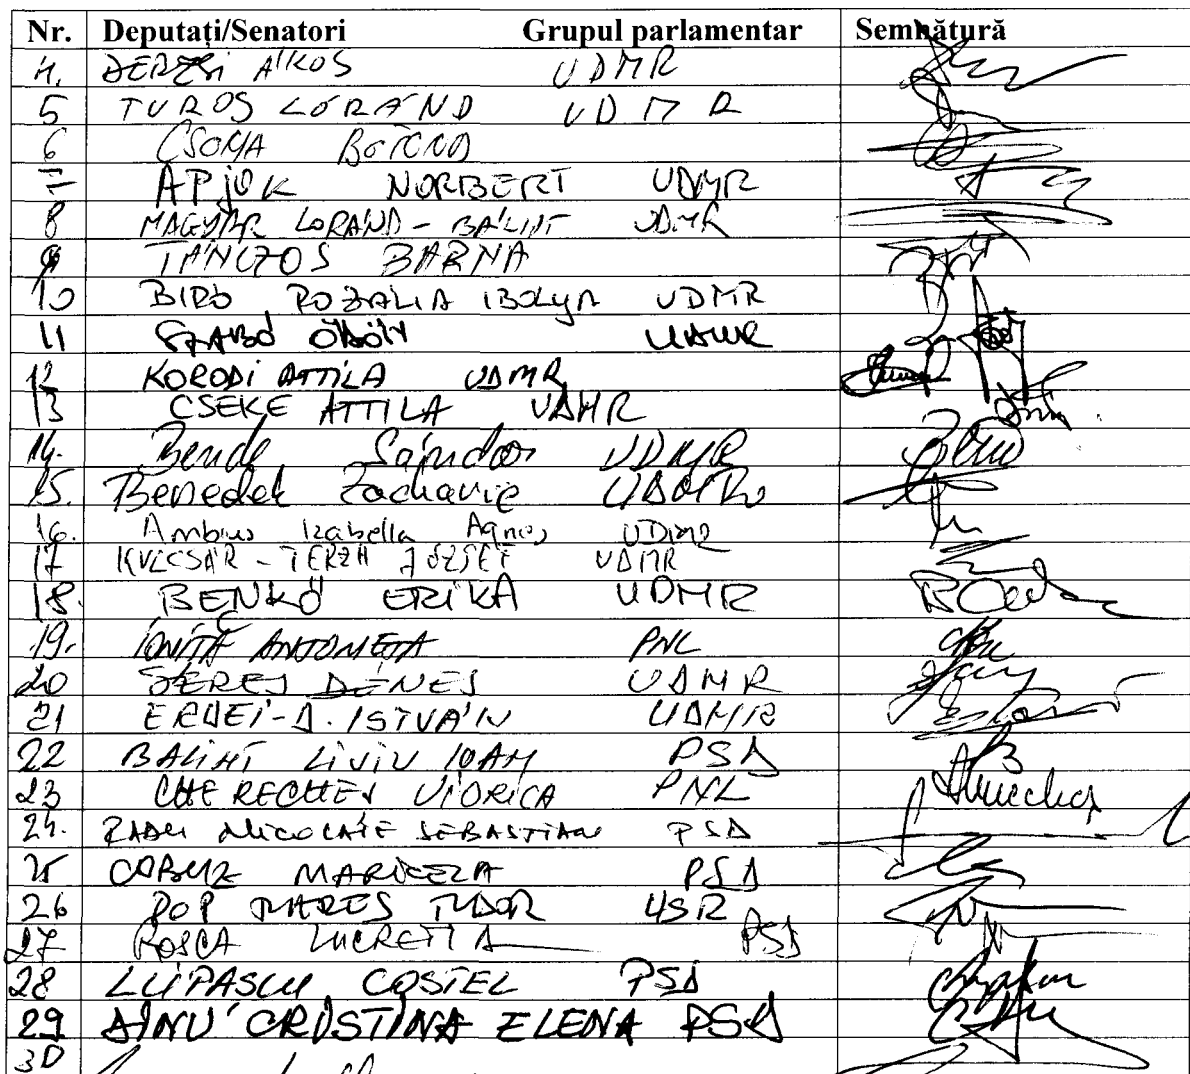 Nr. Deputaţi/Senatori Grupul parlamentar Semnătură
4. DERZSI ÁKOS UDMR
5 TUROS LÓRÁND UDMR
6 CSOMA BOTOND
7 APJOK NORBERT UDMR
8 MAGYAR LORÁND-BÁLINT UDMR
9 TÁNCZOS BARNA
10 BIRÓ ROZALIA IBOLYA UDMR
11 SZABÓ ÖDÖN UDMR
12 KORODI ATTILA UDMR
13 CSEKE ATTILA UDMR
14. Bende Sándor UDMR
15. Benedek Zacharie UDMR
16. Ambrus Izabella Agnes UDMR
17 KULCSÁR-TERZA JÓZSEF UDMR
18. BENKŐ ERIKA UDMR
19. IONIȚĂ ANTONETA PNL
20 SERES DÉNES UDMR
21 ERDEI-D. ISTVÁN UDMR
22 BALINT LIVIU IOAN PSD
23 CHERECHEȘ VIORICA PNL
24. RADU NICOLAIE SEBASTIAN PSD
25 COBUZ MARICELA PSD
26 POP RAREȘ TUDOR USR
27 ROȘCA LUCREȚIA PSD
28 LUPAȘCU COSTEL PSD
29 DINU CRISTINA ELENA PSD
30